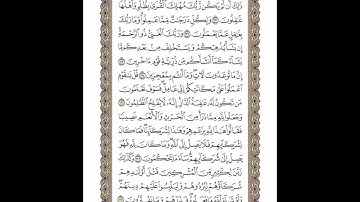 ذَٰلِكَ أَن لَّمْ يَكُن رَّبُّكَ مُهْلِكَ ٱلْقُرَىٰ بِظُلْمٍ وَأَهْلُهَا
غَٰفِلُونَ ١٣١ وَلِكُلٍّ دَرَجَٰتٌ مِّمَّا عَمِلُوا۟ وَمَا رَبُّكَ
بِغَٰفِلٍ عَمَّا يَعْمَلُونَ ١٣٢ وَرَبُّكَ ٱلْغَنِىُّ ذُو ٱلرَّحْمَةِ
إِن يَشَأْ يُذْهِبْكُمْ وَيَسْتَخْلِفْ مِنۢ بَعْدِكُم مَّا
يَشَآءُ كَمَآ أَنشَأَكُم مِّن ذُرِّيَّةِ قَوْمٍ ءَاخَرِينَ ١٣٣
إِنَّ مَا تُوعَدُونَ لَءَاتٍ وَمَآ أَنتُم بِمُعْجِزِينَ ١٣٤ قُلْ يَٰقَوْمِ
ٱعْمَلُوا۟ عَلَىٰ مَكَانَتِكُمْ إِنِّى عَامِلٌ فَسَوْفَ تَعْلَمُونَ
مَن تَكُونُ لَهُۥ عَٰقِبَةُ ٱلدَّارِ إِنَّهُۥ لَا يُفْلِحُ ٱلظَّٰلِمُونَ ١٣٥
وَجَعَلُوا۟ لِلَّهِ مِمَّا ذَرَأَ مِنَ ٱلْحَرْثِ وَٱلْأَنْعَٰمِ نَصِيبًا
فَقَالُوا۟ هَٰذَا لِلَّهِ بِزَعْمِهِمْ وَهَٰذَا لِشُرَكَآئِنَا فَمَا كَانَ
لِشُرَكَآئِهِمْ فَلَا يَصِلُ إِلَى ٱللَّهِ وَمَا كَانَ لِلَّهِ فَهُوَ
يَصِلُ إِلَىٰ شُرَكَآئِهِمْ سَآءَ مَا يَحْكُمُونَ ١٣٦ وَكَذَٰلِكَ
زَيَّنَ لِكَثِيرٍ مِّنَ ٱلْمُشْرِكِينَ قَتْلَ أَوْلَٰدِهِمْ
شُرَكَآؤُهُمْ لِيُرْدُوهُمْ وَلِيَلْبِسُوا۟ عَلَيْهِمْ دِينَهُمْ
وَلَوْ شَآءَ ٱللَّهُ مَا فَعَلُوهُ فَذَرْهُمْ وَمَا يَفْتَرُونَ ١٣٧